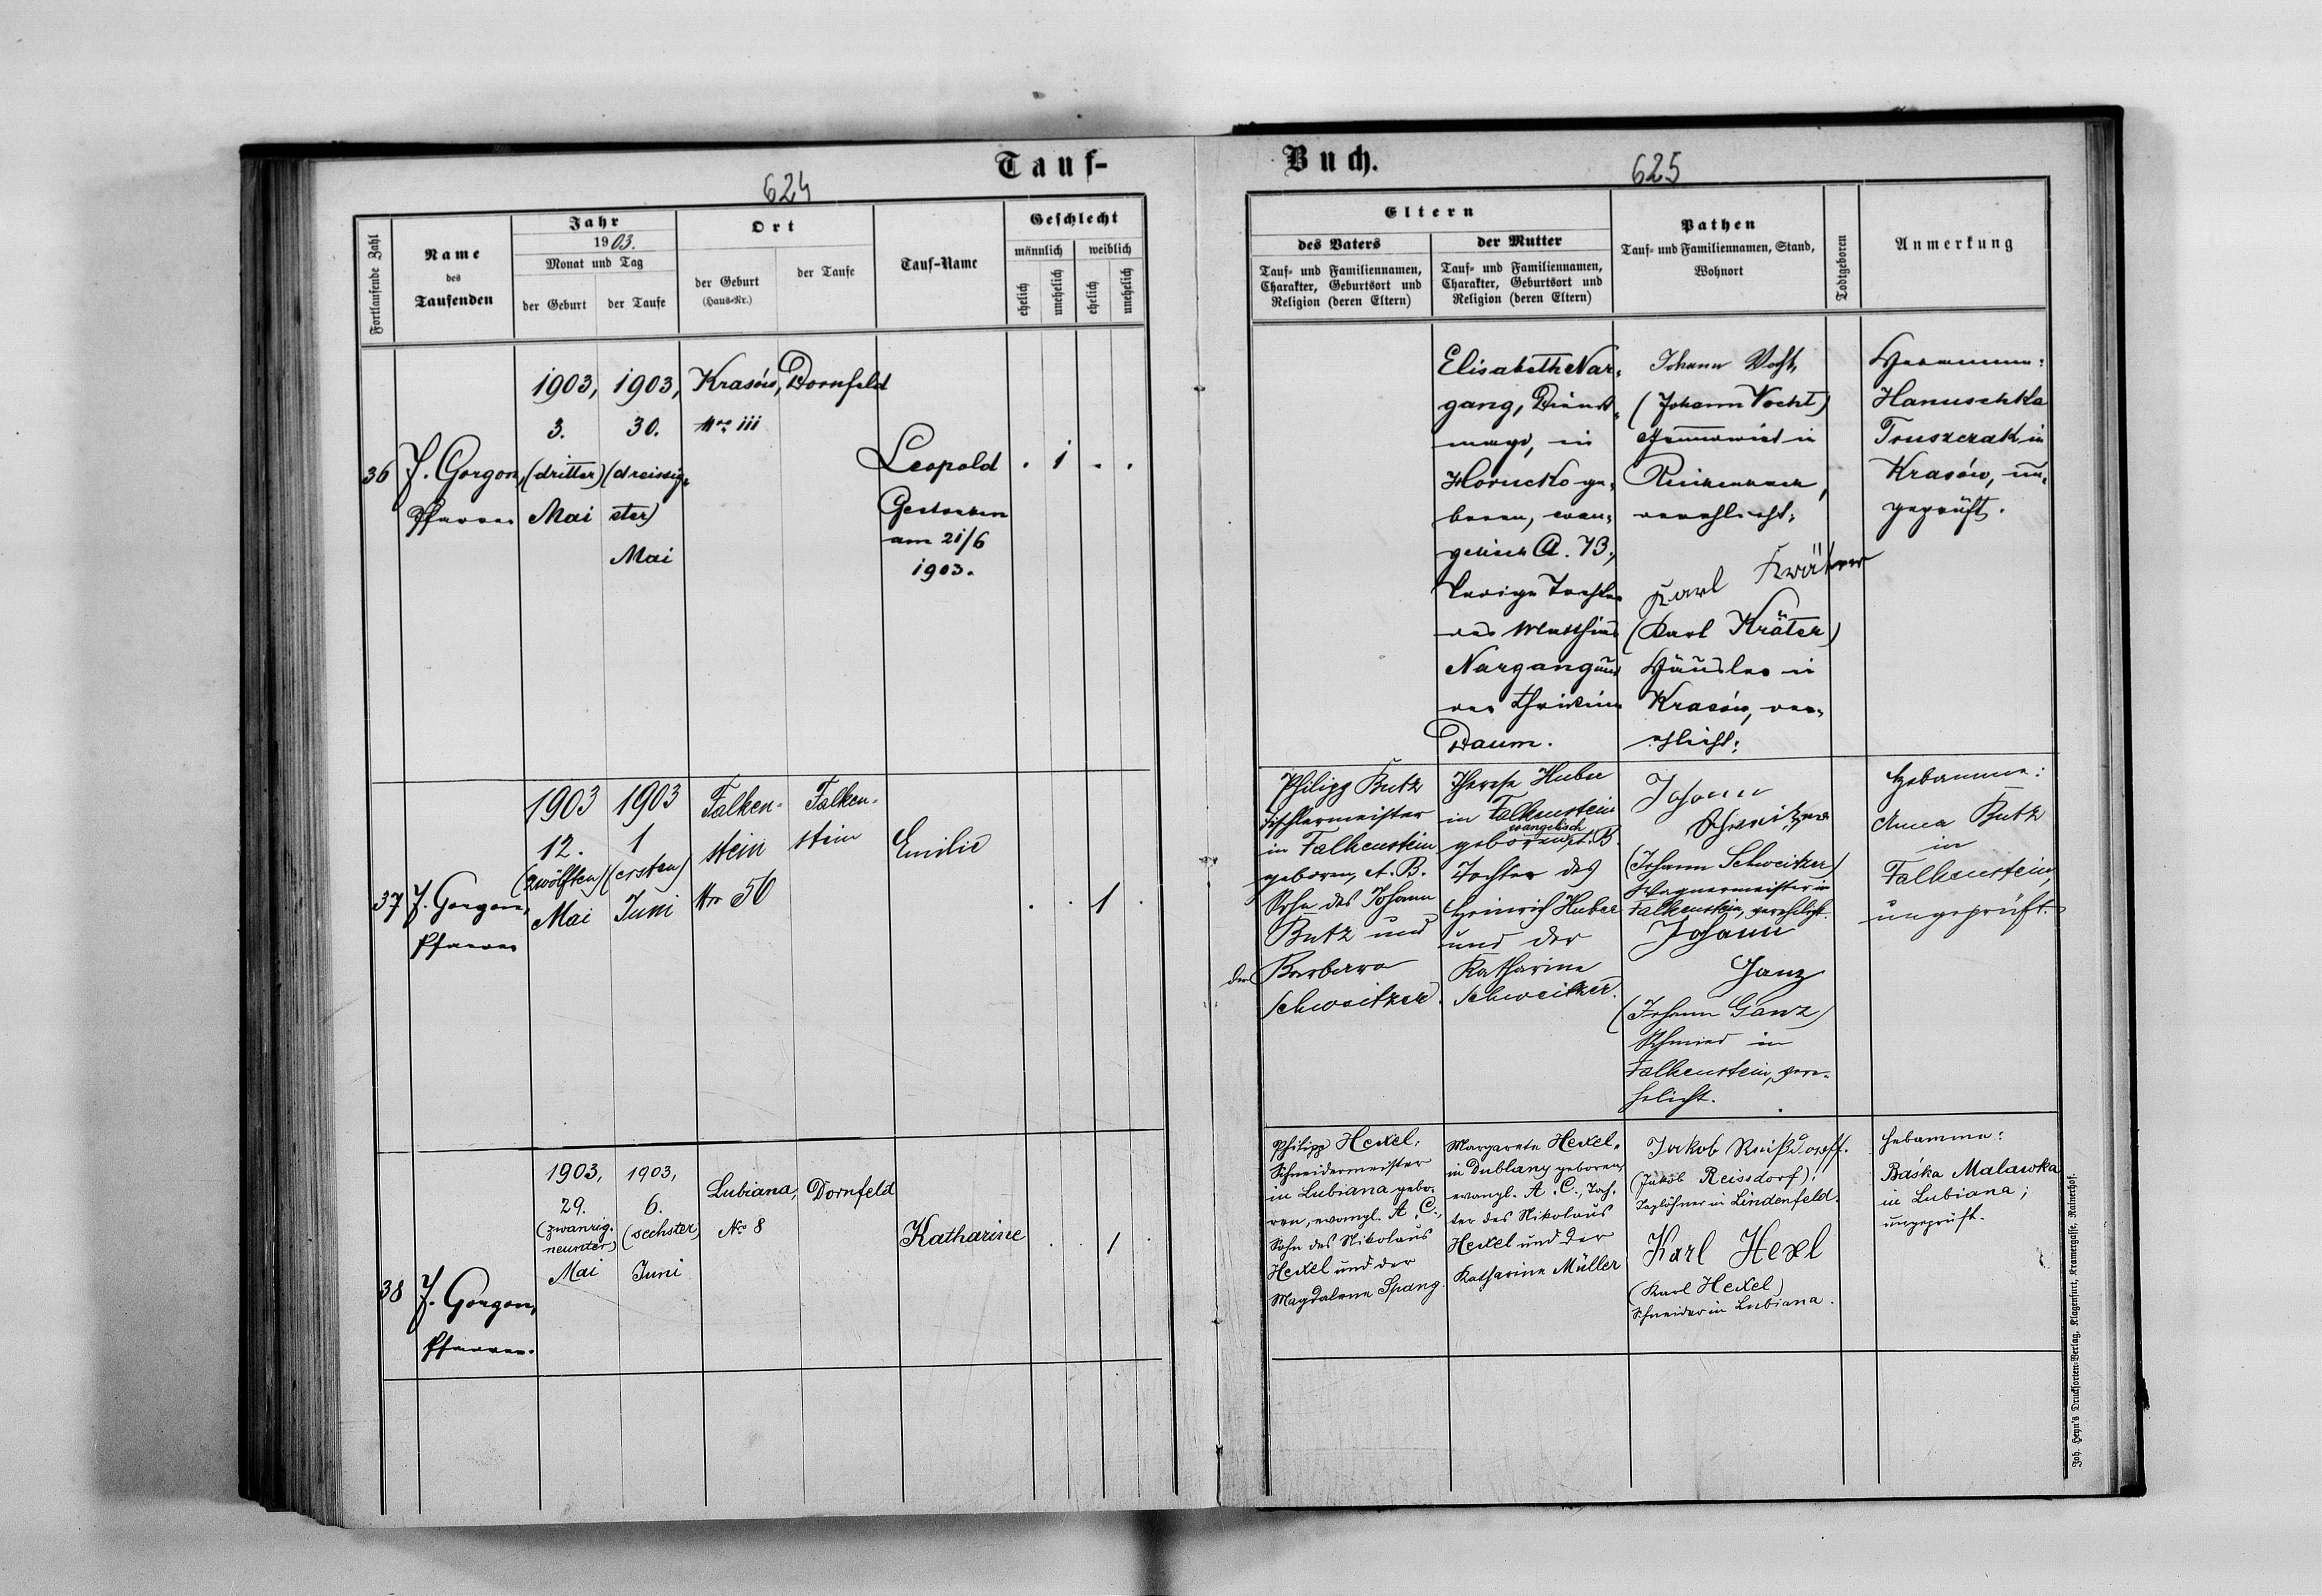 Tauf-
624
Fortlaufende Zahl
Name
des
Taufenden
Jahr
1903.
Monat und Tag
der Geburt
der Taufe
Ort
der Geburt
(Haus-Nr.)
der Taufe
Tauf-Name
Geschlecht
männlich
weiblich
ehelich
unehelich
ehelich
unehelich
36
J. Gorgon,
Pfarrer
1903,
3.
(dritter)
Mai
1903,
30.
(dreissig-
ster)
Mai
Krasów,
Nro 111
Dornfeld
Leopold
Gestorben
am 21/6
1903.
. 1 . .
37
J. Gorgon,
Pfarrer
1903
12.
(zwölften)
Mai
1903
1
(ersten)
Juni
Falken-
stein
Nr 56
Falken-
stein
Emilie
. . 1 .
38
J. Gorgon,
Pfarrer.
1903,
29.
(zwanzig.
neunter)
Mai
1903,
6.
(sechster)
Juni
Lubiana,
No 8
Dornfeld
Katharine
. . 1 .
Buch.
625
Eltern
des Vaters
Tauf- und Familiennamen,
Charakter, Geburtsort und
Religion (deren Eltern)
der Mutter
Tauf- und Familiennamen,
Charakter, Geburtsort und
Religion (deren Eltern)
Pathen
Tauf- und Familiennamen, Stand,
Wohnort
Todtgeboren
Anmerkung
Elisabeth Nar-
gang, Dienst-
magd, in
Horucko ge-
boren, evan-
gelisch A. B.,
ledige Tochter
des Matthias
Nargang und
der Christina
Daum.
Johann Vocht,
(Johann Vocht)
Grundwirt in
verehlicht;
Karl Kräter
(Karl Kräter)
Häusler in
Krasów, ver-
ehlicht;
Hebamme:
Hanuschka
Truszczak in
Krasów, un-
geprüft.
Philipp Butz
Tischlermeister
in Falkenstein
geboren, A. B.
Sohn des Johann
Butz und
der Barbara
Schweitzer.
Therese Huber
in Falkenstein
evangelisch
geboren, A. B.
Tochter des
Heinrich Huber
und der
Katharine
Schweitzer.
Johann
Schweitzer
(Johann Schweitzer)
Wagnermeister in
Falkenstein, verehlicht.
Johann
Ganz
(Johann Ganz)
Schmied in
Falkenstein, vere-
helicht.
Hebamme:
Anna Butz
in
Falkenstein,
ungeprüft.
Philipp Hexel,
Schneidermeister
in Lubiana gebo-
ren, evangl. A. C.,
Sohn des Nikolaus
Hexel und der
Magdalena Spang.
Margarete Hexel,
in Dublany geboren,
evangl. A. C., Toch-
ter des Nikolaus
Hexel und der
Katharina Müller
Jakob Reißdorff.
(Jakob Reissdorf)!
Taglöhner in Lindenfeld.
Karl Hexl
(Karl Hexel)
Schneider in Lubiana.
Hebamme:
Baśka Malawka
in Lubiana;
ungeprüft.
Joh. Heyn's Drucksorten-Verlag, Klagenfurt, Kramergasse, Rainerhof.